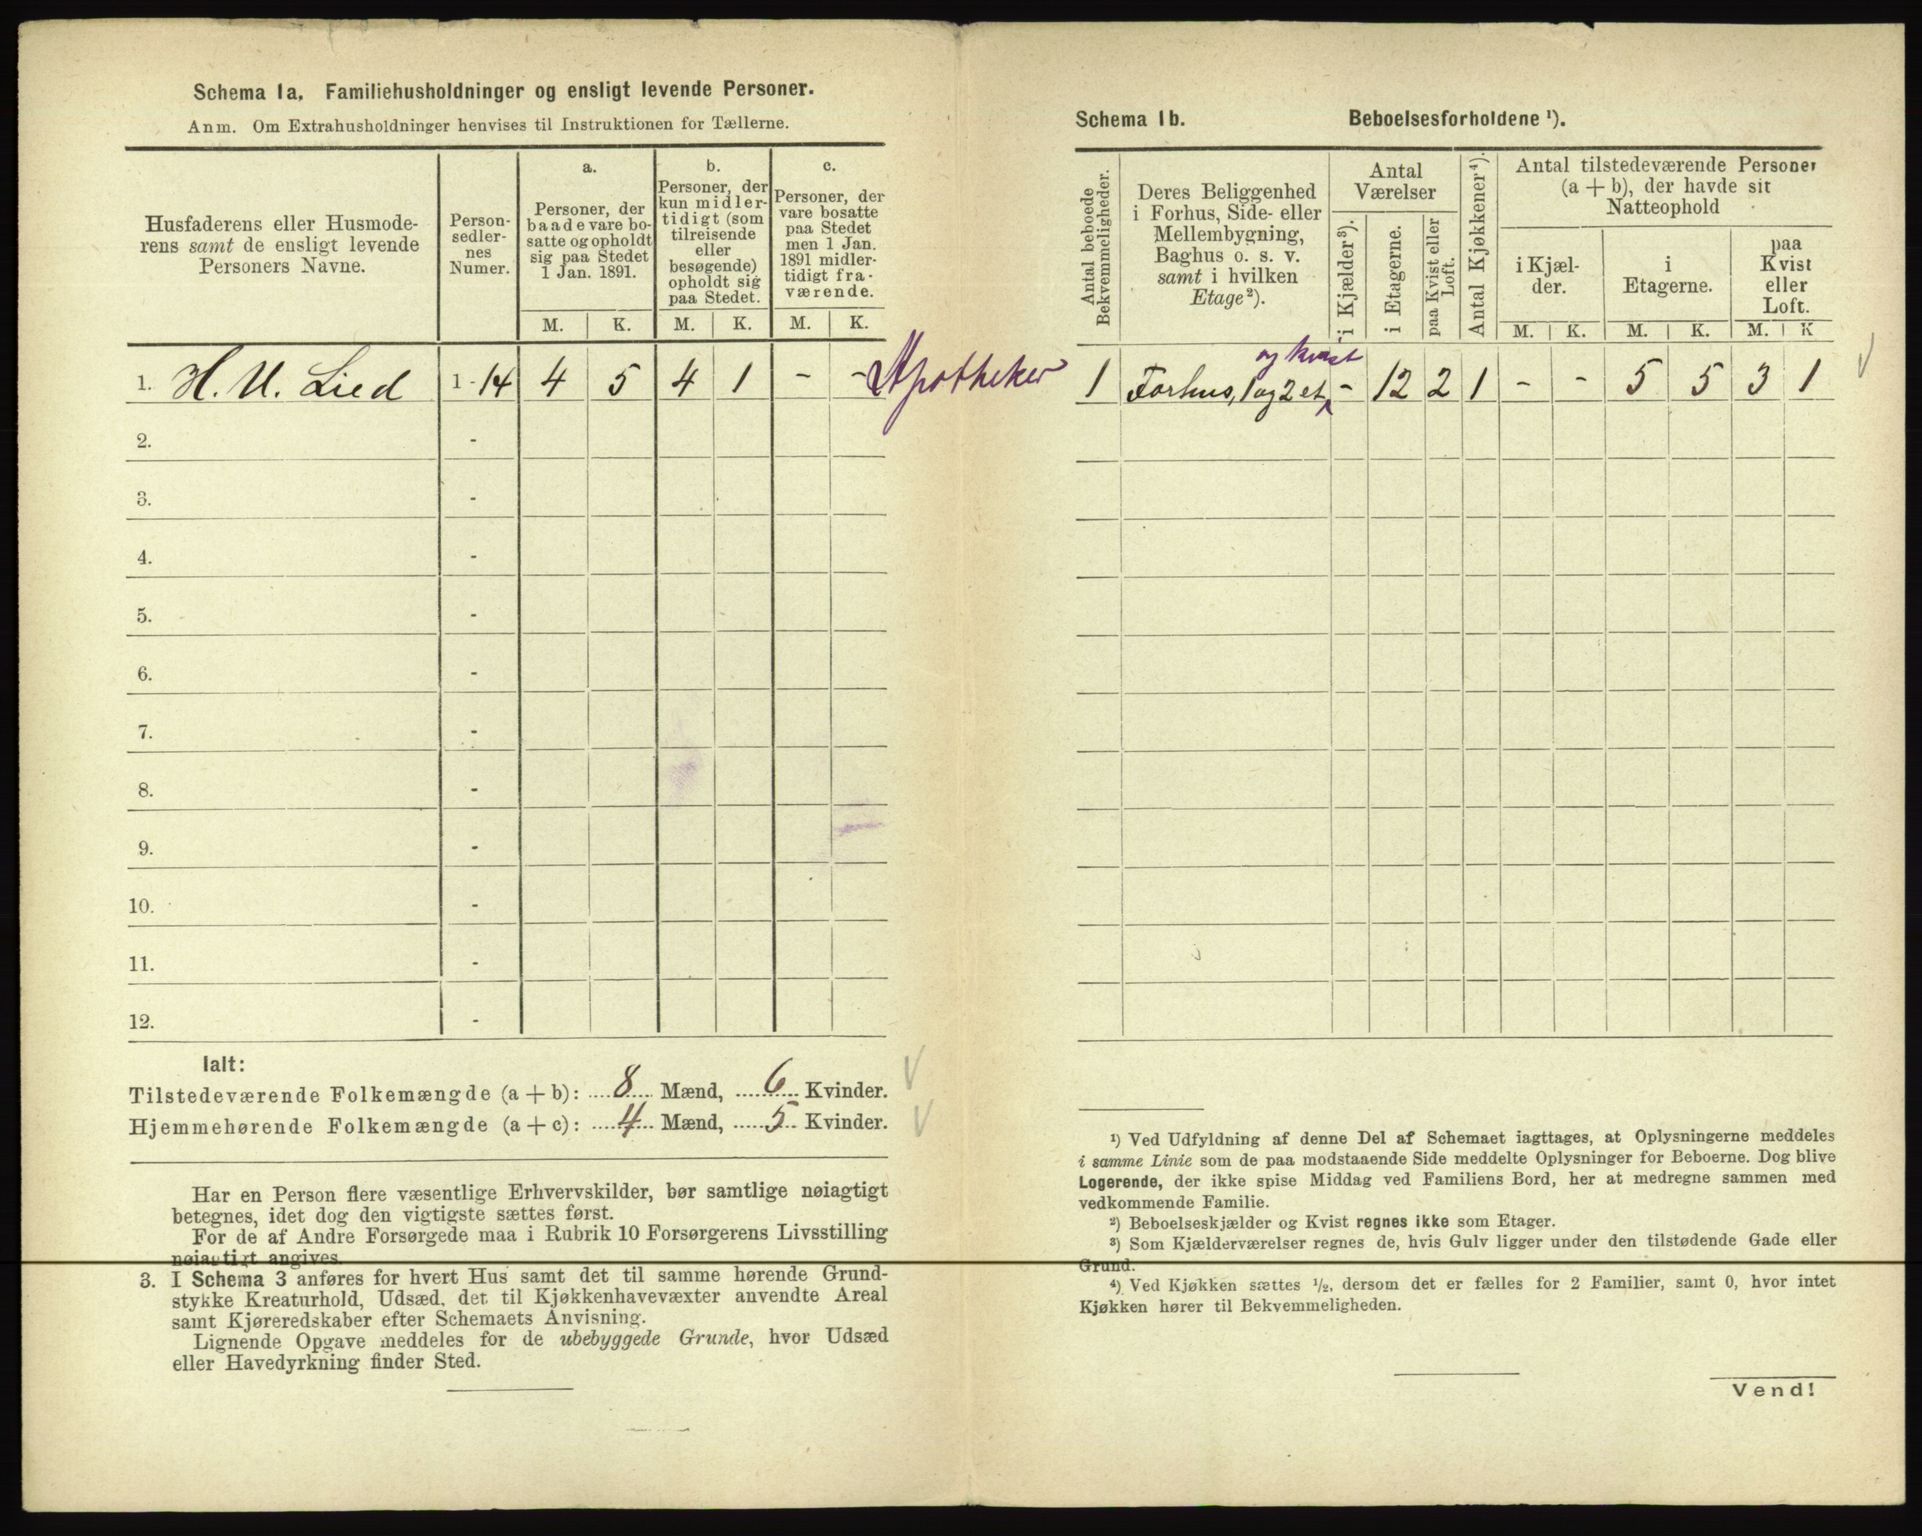 Schema 1a. Familiehusholdninger og ensligt levende Personer.
Anm. Om Extrahusholdninger henvises til Instruktionen for Tællerne.
Husfaderens eller Husmode-
rens samt de ensligt levende
Personers Navne.
Person-
sedler-
nes
Numer.
a.
Personer, der
baade vare bo-
satte og opholdt
sig paa Stedet
1 Jan. 1891.
b.
Personer, der
kun midler-
tidigt (som
tilreisende
eller
besøgende)
opholdt sig
paa Stedet.
c.
Personer, der
vare bosatte
paa Stedet
men 1 Jan.
1891 midler-
tidigt fra-
værende.
M. K. M. K. M. K.
1. H. U. Lied 1 - 14 4 5 4 1 - - Apotheker
2. -
3. -
4. -
5. -
6. -
7. -
8. -
9. -
10.
11. -
12. -
Ialt:
Tilstedeværende Folkemængde (a + b): 8 Mænd, 6 Kvinder.
Hjemmehørende Folkemængde (a + c): 4 Mænd, 5 Kvinder.
Har en Person flere væsentlige Erhvervskilder, bør samtlige nøiagtigt
betegnes, idet dog den vigtigste sættes først.
For de af Andre Forsørgede maa i Rubrik 10 Forsørgerens Livsstilling
nøiagtigt angives.
3. I Schema 3 anføres for hvert Hus samt det til samme hørende Grund-
stykke Kreaturhold, Udsæd, det til Kjøkkenhavevæxter anvendte Areal
samt Kjøreredskaber efter Schemaets Anvisning.
Lignende Opgave meddeles for de ubebyggede Grunde, hvor Udsæd
eller Havedyrkning finder Sted.
Schema 1b. Beboelsesforholdene ¹).
Antal beboede
Bekvemmeligheder.
Deres Beliggenhed
i Forhus, Side- eller
Mellembygning,
Baghus o. s. v.
samt i hvilken
Etage ²).
Antal
Værelser
i Kjælder ³).
i Etagerne.
paa Kvist eller
Loft.
Antal Kjøkkener ⁴).
Antal tilstedeværende Personer
(a + b), der havde sit
Natteophold
i Kjæl-
der.
i
Etagerne.
paa
Kvist
eller
Loft.
M. K. M. K. M. K
og kvist
1 Forhus, 1 og 2 et, - 12 2 1 - - 5 5 3 1
¹) Ved Udfyldning af denne Del af Schemaet iagttages, at Oplysningerne meddeles
i samme Linie som de paa modstaaende Side meddelte Oplysninger for Beboerne. Dog blive
Logerende, der ikke spise Middag ved Familiens Bord, her at medregne sammen med
vedkommende Familie.
²) Beboelseskjælder og Kvist regnes ikke som Etager.
³) Som Kjælderværelser regnes de, hvis Gulv ligger under den tilstødende Gade eller
Grund.
⁴) Ved Kjøkken sættes ½, dersom det er fælles for 2 Familier, samt 0, hvor intet
Kjøkken hører til Bekvemmeligheden.
Vend!